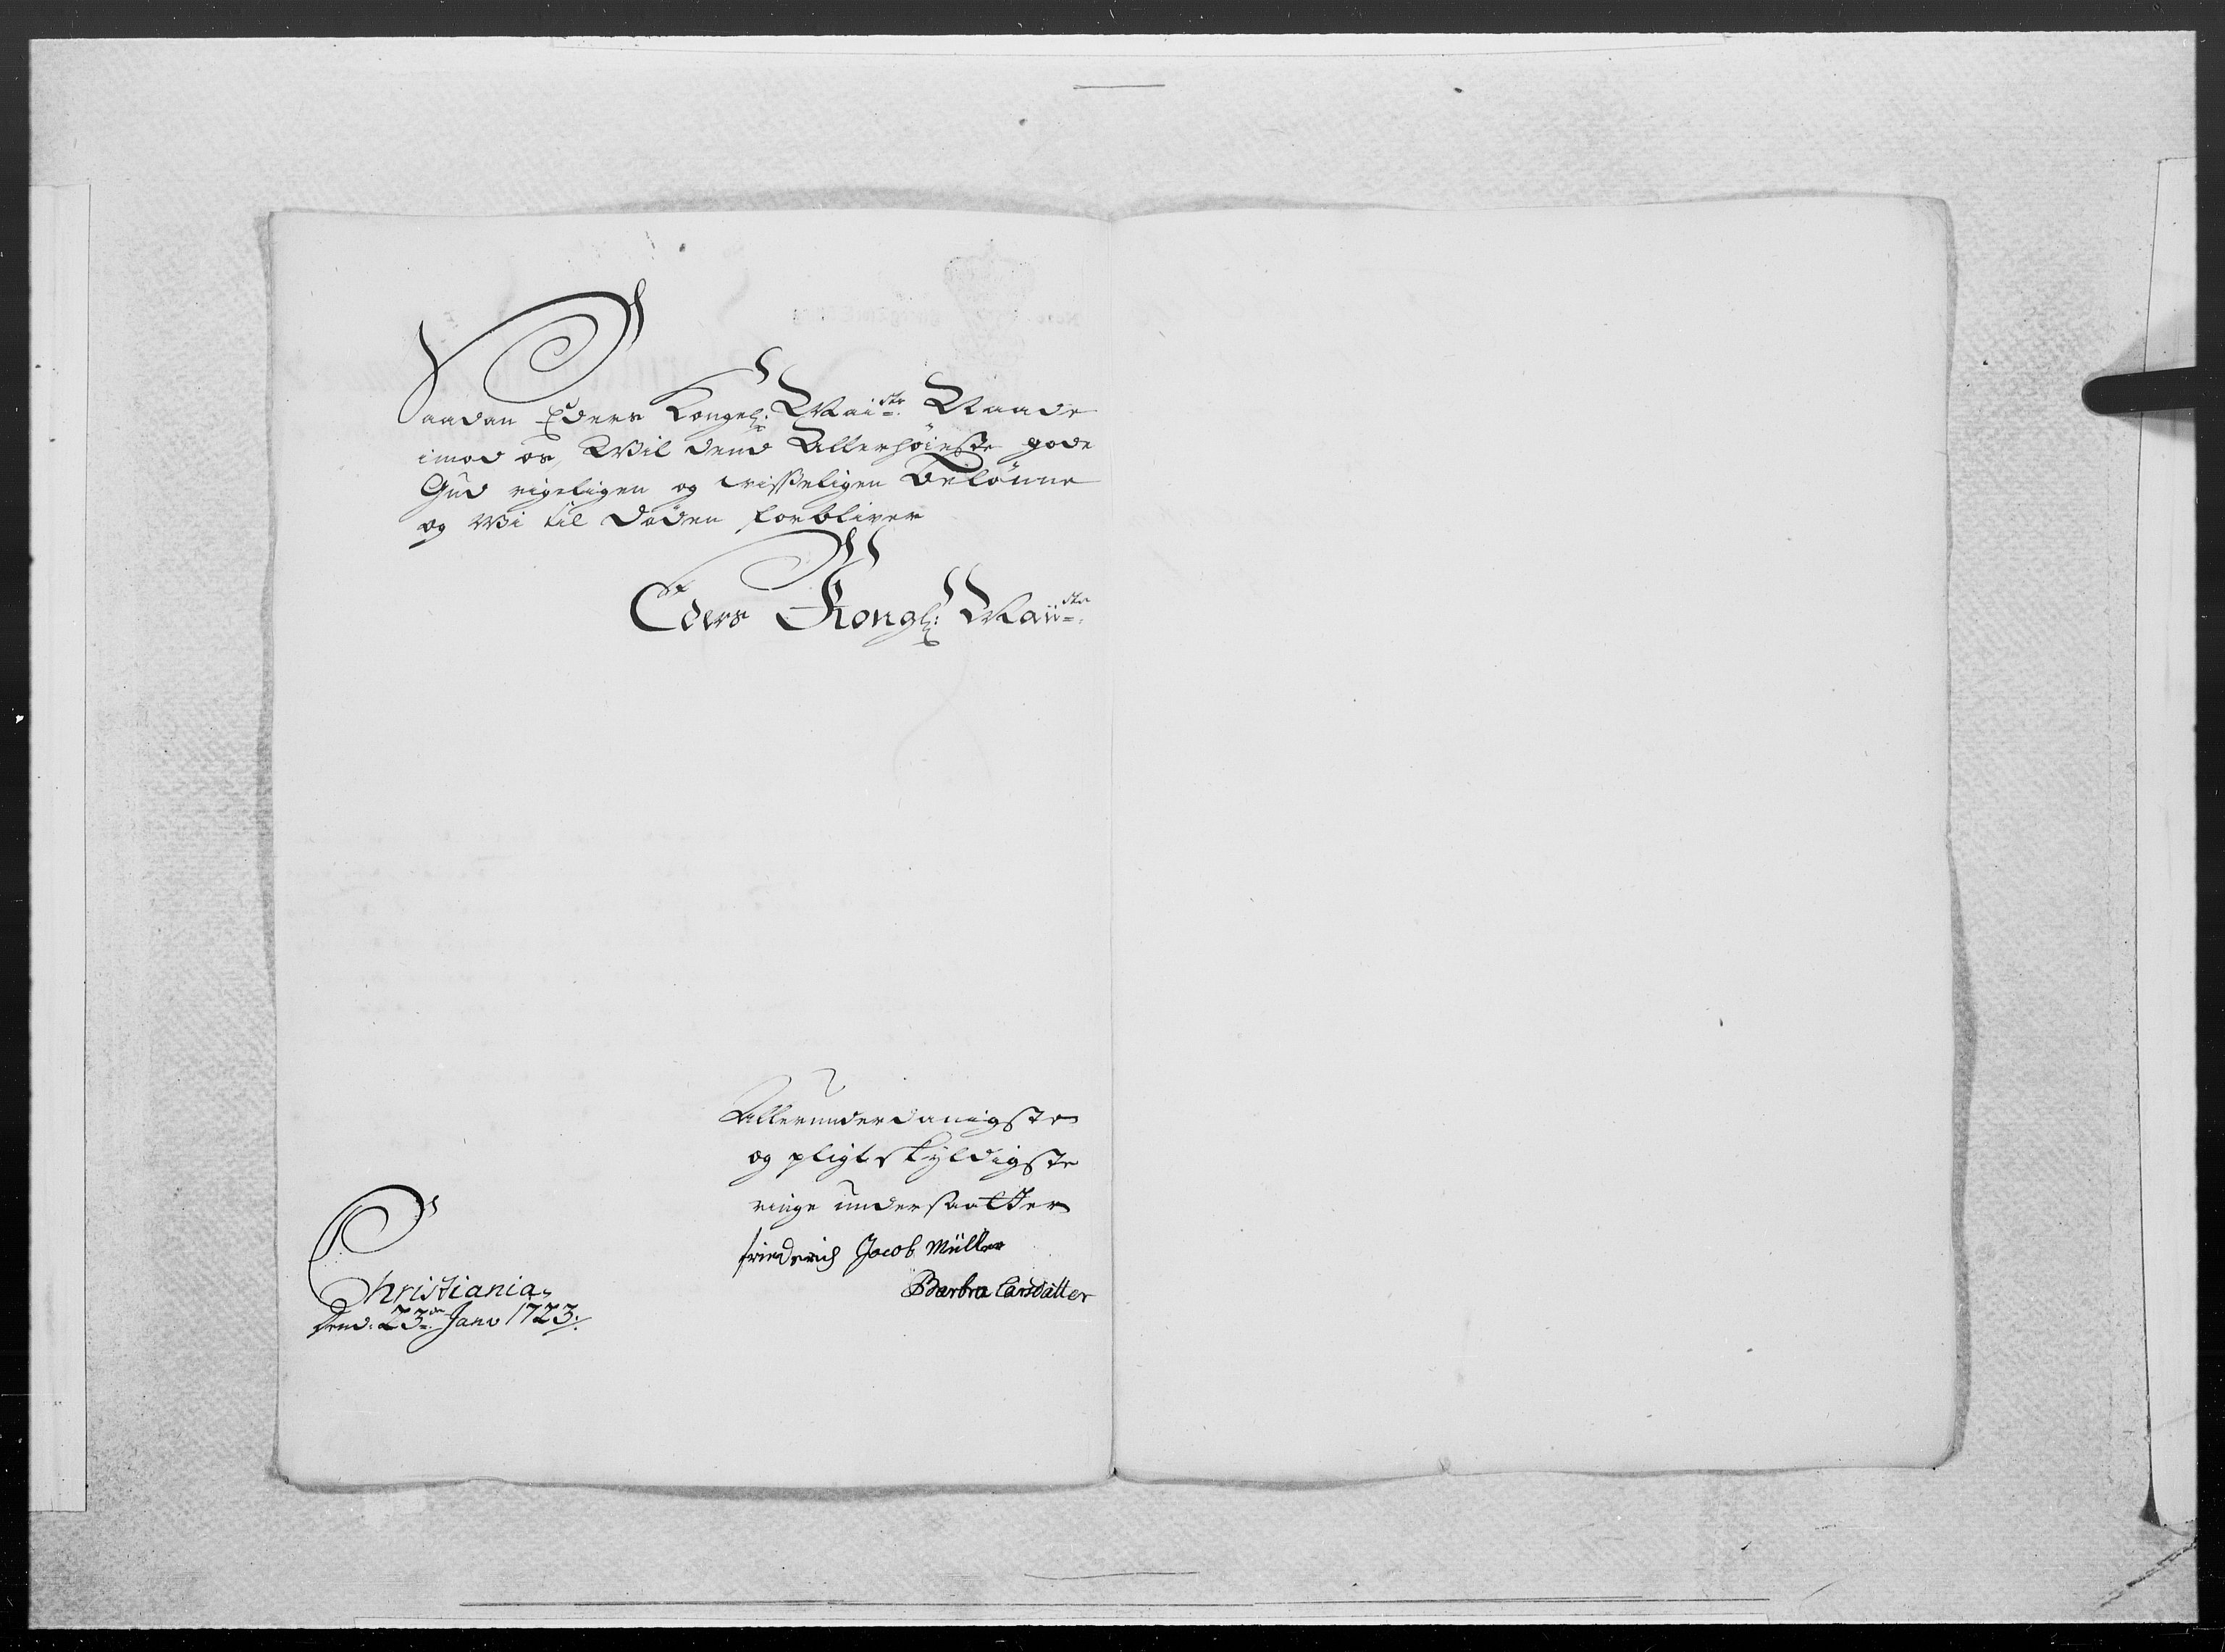 Saadan Eders Kongel: Mai:sts Naade
imod os, Wil dend Allerhöieste gode
Gud rigeligen og visseligen Belönne
og Wi til Döden forbliver
Eders Kongl: Maii:sts
Allerunderdanigste
og pligtskyldigste
ringe undersaatter
friederich Jacob Müller
Barbra Larsdatter
Christiania
dend. 23de Janv 1723.